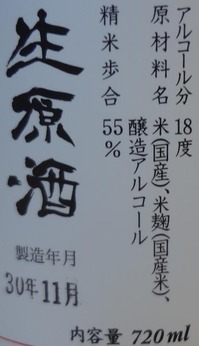 アルコール分 18度
原材料名 米(国産)、米麹(国産米)、
醸造アルコール
精米歩合 55%
生原酒
製造年月
30年11月
内容量 720ml